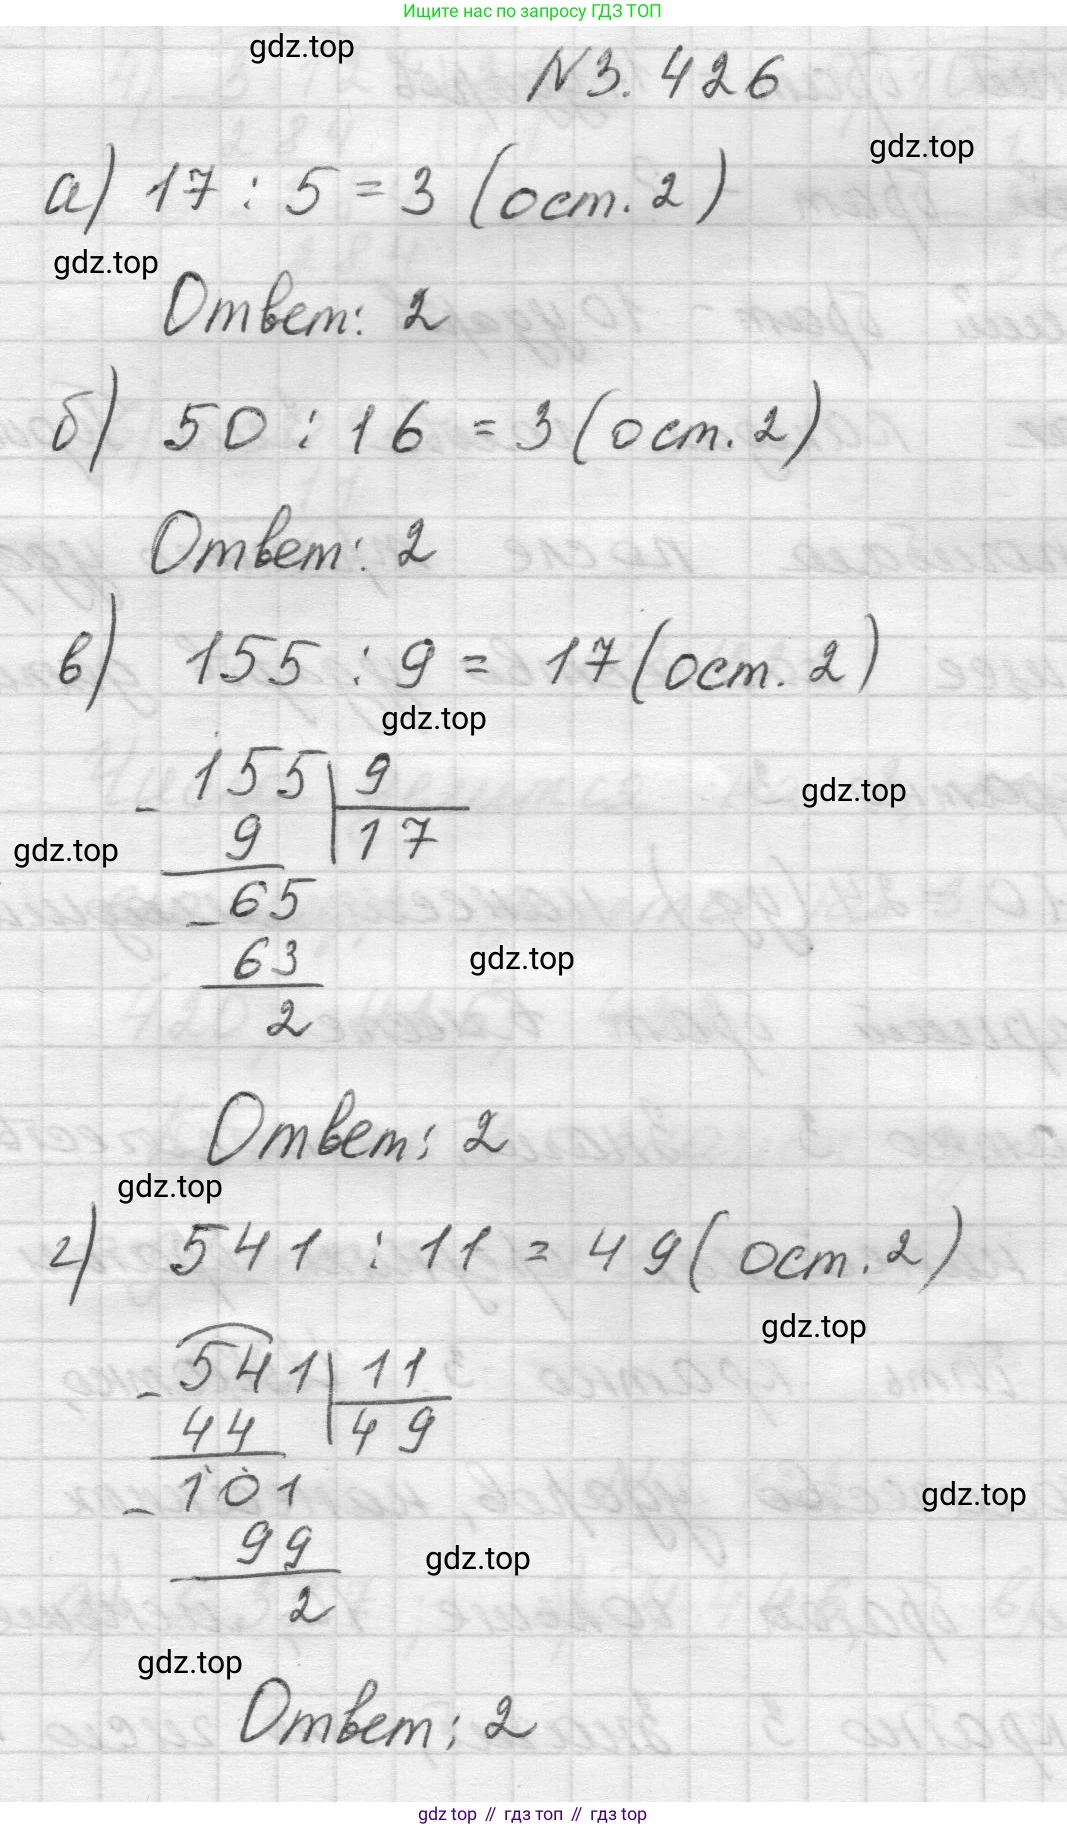 Ищите нас по запросу ГДЗ ТОП
gdz.top
N3.426
gdz.top
а) 17 : 5 = 3 (ост. 2)
gdz.top
Ответ: 2
б) 50 : 16 = 3 (ост. 2)
Ответ: 2
в) 155 : 9 = 17 (ост. 2)
gdz.top
- 155 | 9
gdz.top
9 | 17
gdz.top
- 65
63
gdz.top
2
Ответ: 2
gdz.top
г) 541 : 11 = 49 (ост. 2)
gdz.top
- 541 | 11
44 | 49
- 101
gdz.top
99
gdz.top
2
gdz.top
Ответ: 2
gdz top // гдз топ // gdz top